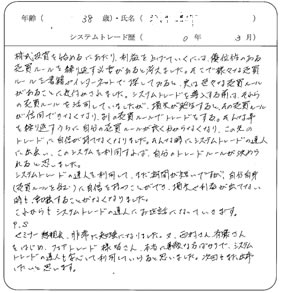 年齢( 38 歳)・氏名(
システムトレード歴( 0年 3月)
株式投資を始めるにあたり、利益を上げていくには、優位性のある
売買ルールを繰り返す必要があると考えました。そこで様々な売買
ルールを書籍やインターネットで探してみると、実に様々な売買ルール
があることに気付かされました。システムトレードを導入する前は、それら
の売買ルールを活用していましたが、損失が発生すると、その売買ルール
が信用できなくなり、別の売買ルールでトレードをする。そんな事
を繰り返すうちに自分の売買ルールが良く分からなくなり、この先の
トレードに自信が持てなくなりました。そんな時にシステムトレードの達人
に出会い、このシステムを利用すれば、自分のトレードルールが決められ
ると思いました。
システムトレードの達人を利用して、まだ期間が短いですが、自分自身
(売買ルールを含む)に自信を持つことができ、損失や利益が出ていない
時も動揺することがなくなりました。
これからもシステムトレードの達人にお世話になっていきます。
P.S
セミナー 懇親会、非常に勉強になりました。
をはじめ、フェアトレード 様 皆さん、本当に素敵な方ばかりで、システム
トレードの達人を安心して利用していけると思いました。次回もまた出席
したいと思います。